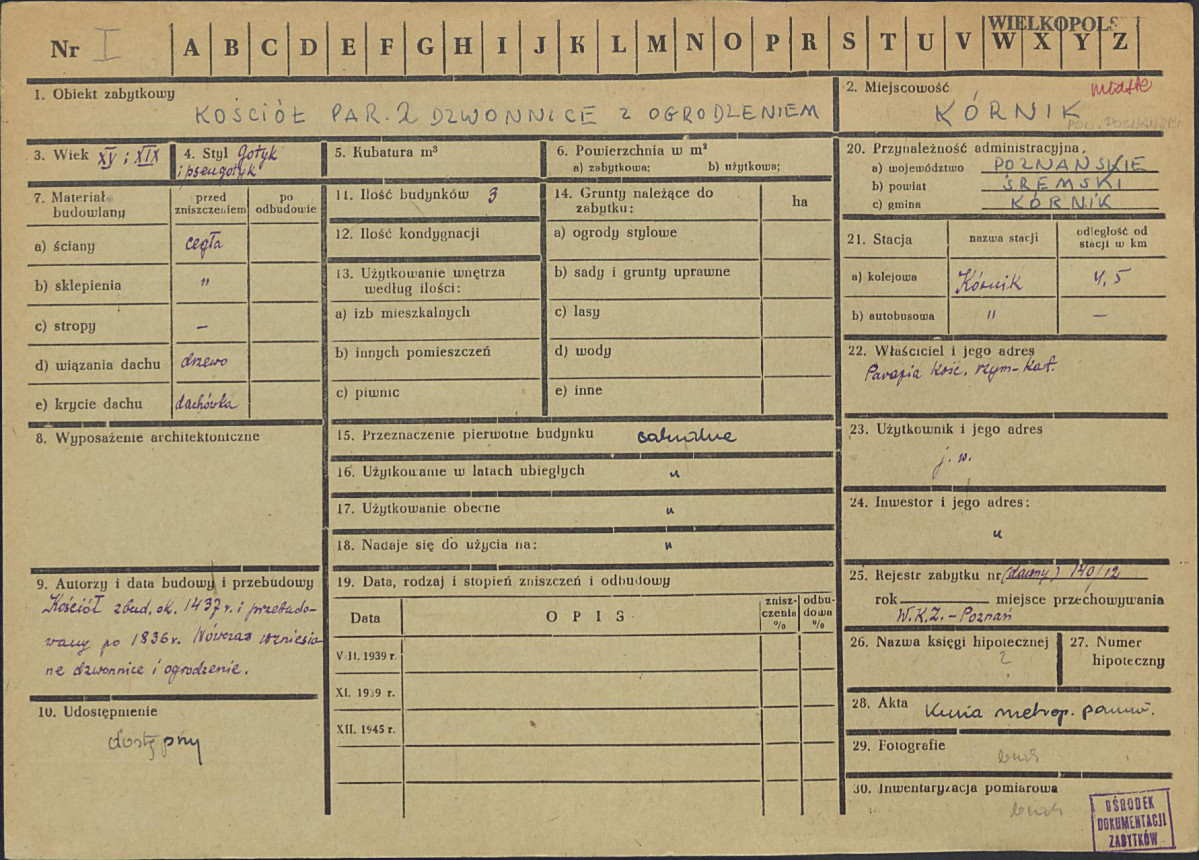 WIELKOPOLS
Nr I A B C D E F G H I J K L M N O P R S T U V W X Y Z
1. Obiekt zabytkowy
KOŚCIÓŁ PAR. 2 DZWONNICE Z OGRODZENIEM
2. Miejscowość
miasto
KÓRNIK
POW. POZNAŃSKI
3. Wiek XV i XIX
4. Styl gotyk
i pseugotyk
5. Kubatura m³
6. Powierzchnia w m²
a) zabytkowa; b) użytkowa;
20. Przynależność administracyjna,
a) województwo POZNAŃSKIE
b) powiat ŚREMSKI
c) gmina KÓRNIK
7. Materiał budowlany
przed zniszczeniem
po odbudowie
a) ściany cegła
b) sklepienia "
c) stropy —
d) wiązania dachu drzewo
e) krycie dachu dachówka
11. Ilość budynków 3
12. Ilość kondygnacji
13. Użytkowanie wnętrza
według ilości:
a) izb mieszkalnych
b) innych pomieszczeń
c) piwnic
14. Grunty należące do
zabytku:
ha
a) ogrody stylowe
b) sady i grunty uprawne
c) lasy
d) wody
e) inne
21. Stacja
nazwa stacji
odległość od
stacji w km
a) kolejowa Kórnik 4,5
b) autobusowa " —
22. Właściciel i jego adres
Parafia Kość. rzym-kat.
8. Wyposażenie architektoniczne
15. Przeznaczenie pierwotne budynku sakralne
16. Użytkowanie w latach ubiegłych "
17. Użytkowanie obecne "
18. Nadaje się do użycia na: "
23. Użytkownik i jego adres
j. w.
24. Inwestor i jego adres:
"
9. Autorzy i data budowy i przebudowy
Kościół zbud. ok. 1437 r. i przebudo-
wany po 1836 r. Wówczas wzniesio-
ne dzwonnice i ogrodzenie.
10. Udostępnienie
dostępny
19. Data, rodzaj i stopień zniszczeń i odbudowy
Data
OPIS
znisz-
czenia
%
odbu-
dowa
%
VII. 1939 r.
XI. 1939 r.
XII. 1945 r.
25. Rejestr zabytku nr (dawny) 140/12
rok miejsce przechowywania
W.K.Z. - Poznań
26. Nazwa księgi hipotecznej
?
27. Numer
hipoteczny
28. Akta Kuria metrop. poznań.
29. Fotografie
brak
30. Inwentaryzacja pomiarowa
brak
OŚRODEK
DOKUMENTACJI
ZABYTKÓW